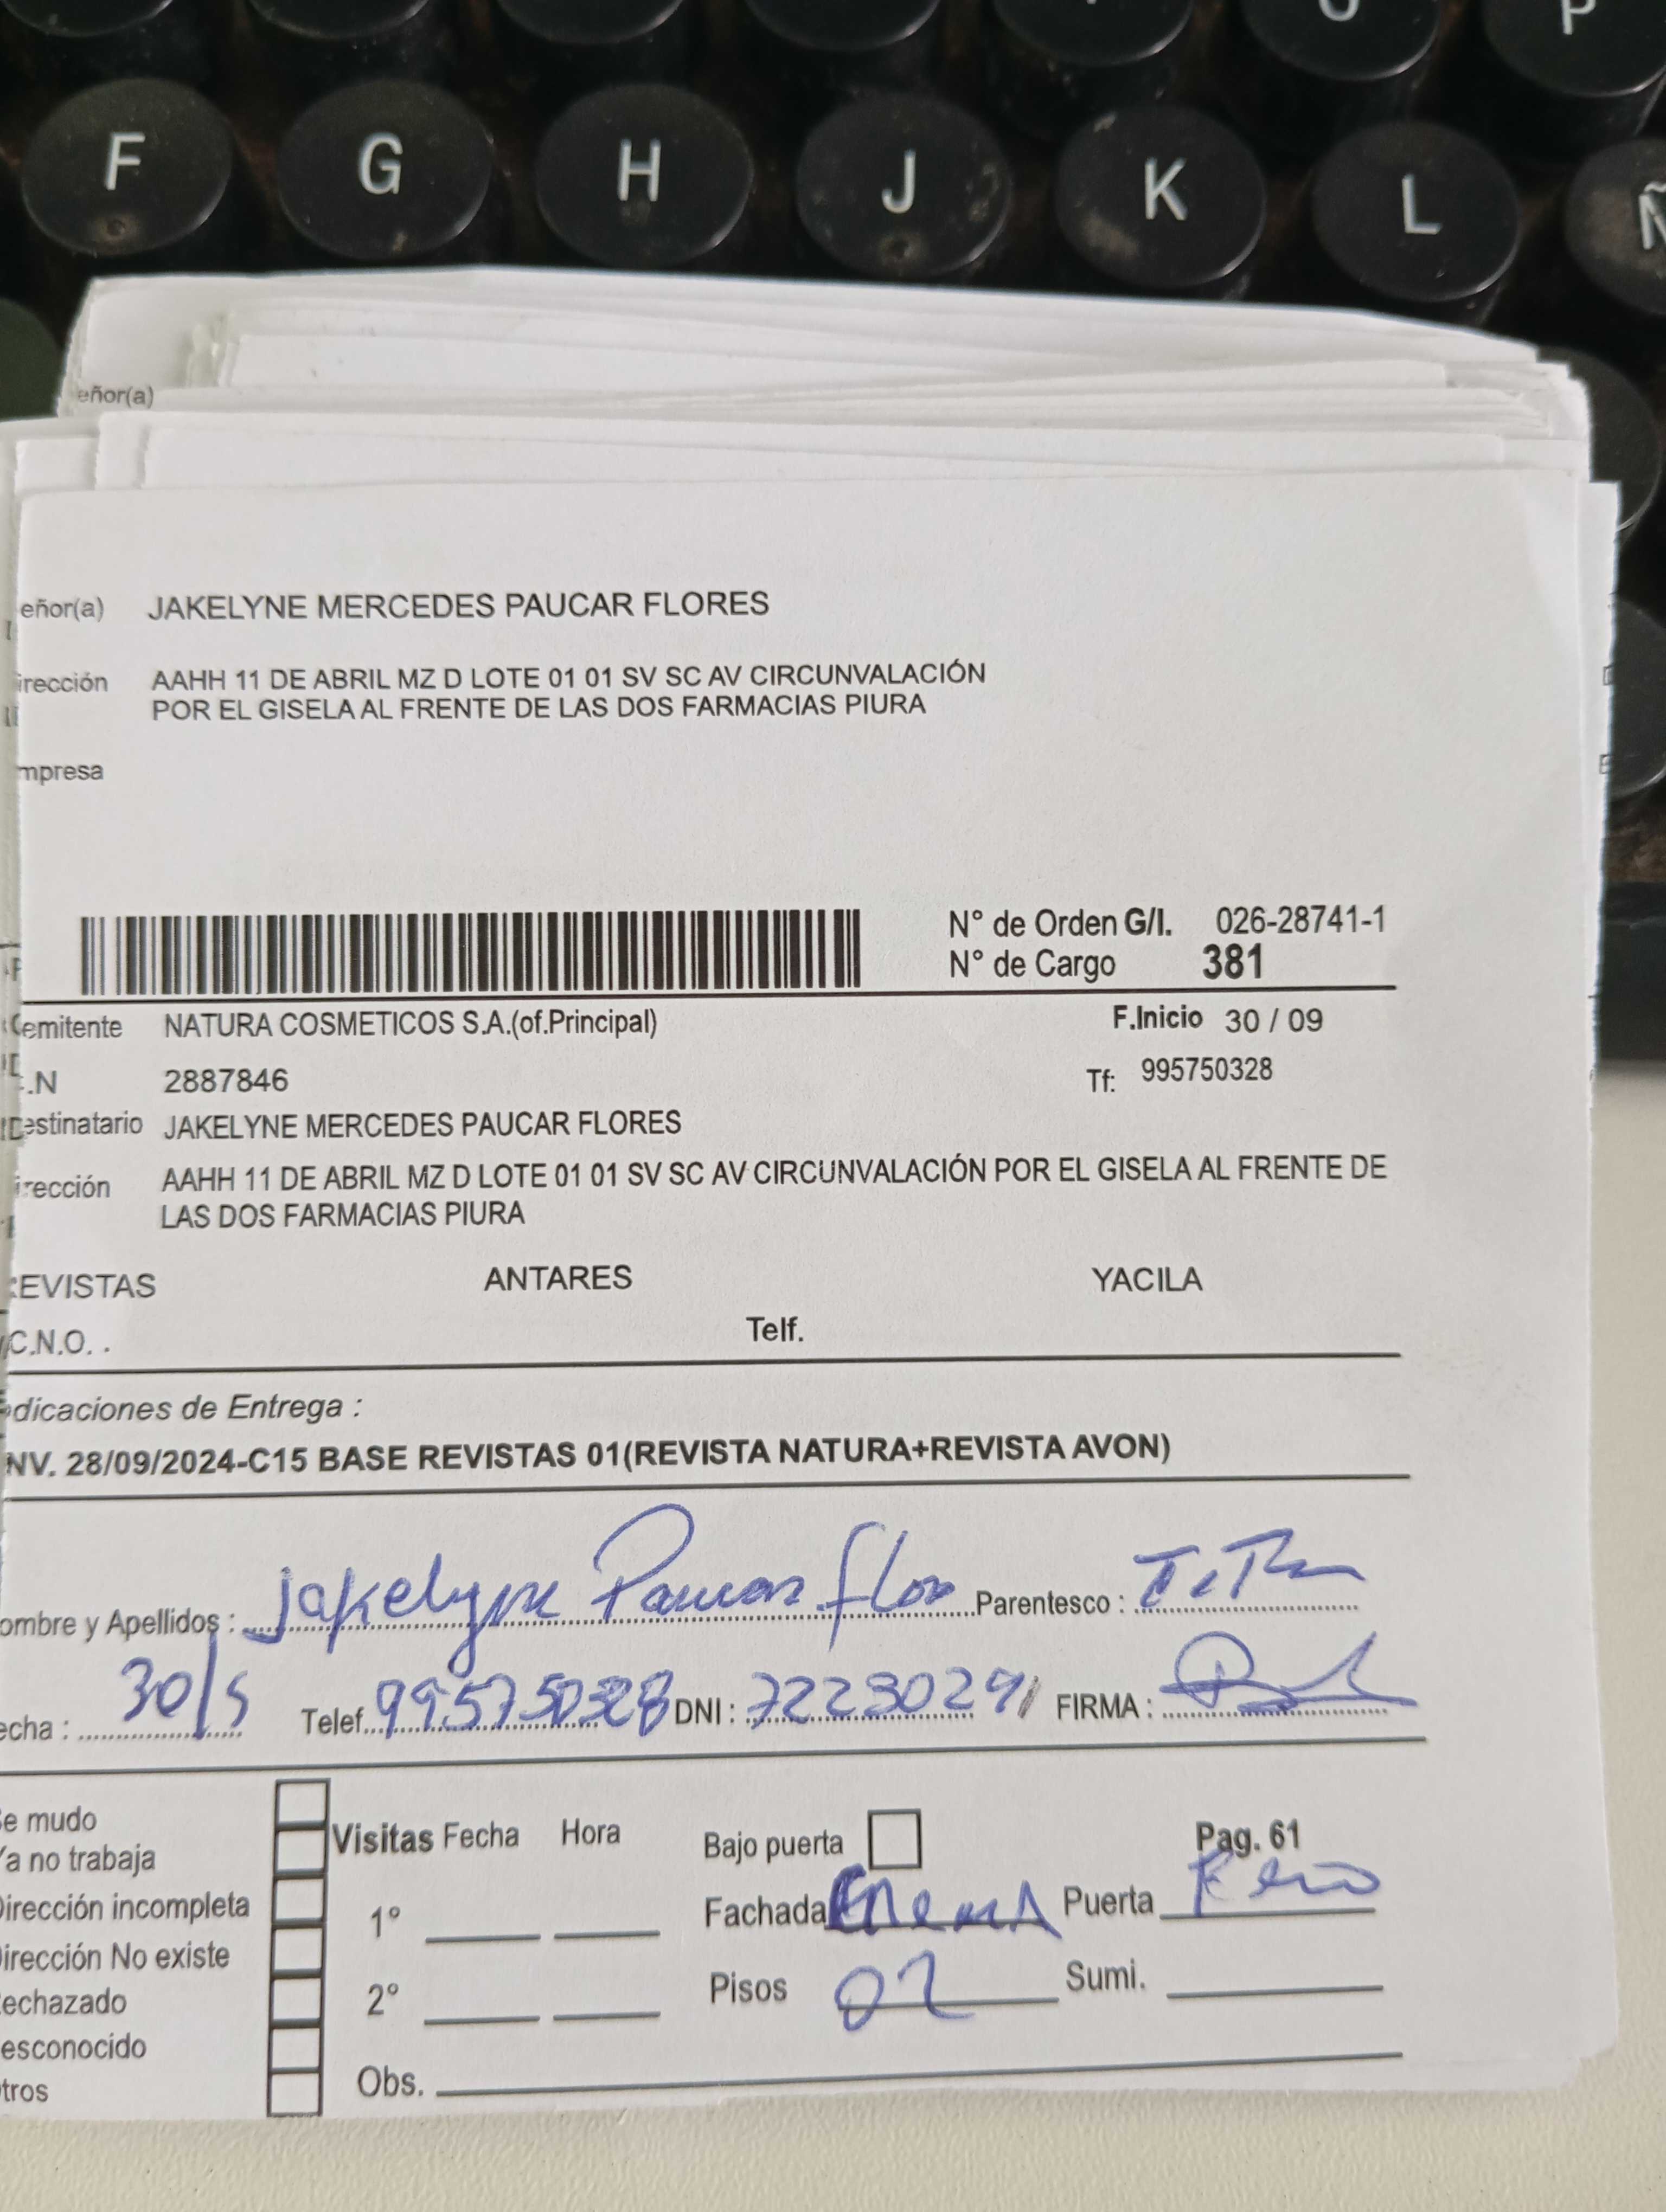 O P
F G H J K L Ñ
eñor(a)
eñor(a) JAKELYNE MERCEDES PAUCAR FLORES
irección AAHH 11 DE ABRIL MZ D LOTE 01 01 SV SC AV CIRCUNVALACIÓN
POR EL GISELA AL FRENTE DE LAS DOS FARMACIAS PIURA
mpresa
N° de Orden G/I. 026-28741-1
N° de Cargo 381
emitente NATURA COSMETICOS S.A.(of.Principal) F.Inicio 30 / 09
.N 2887846 Tf: 995750328
estinatario JAKELYNE MERCEDES PAUCAR FLORES
irección AAHH 11 DE ABRIL MZ D LOTE 01 01 SV SC AV CIRCUNVALACIÓN POR EL GISELA AL FRENTE DE
LAS DOS FARMACIAS PIURA
EVISTAS ANTARES YACILA
C.N.O. . Telf.
dicaciones de Entrega :
NV. 28/09/2024-C15 BASE REVISTAS 01(REVISTA NATURA+REVISTA AVON)
ombre y Apellidos : Jakelyne Paucar Parentesco :
echa : 30/ Telef. 995750328 DNI : 72230291 FIRMA :
e mudo
Visitas Fecha Hora Bajo puerta Pag. 61
a no trabaja
irección incompleta 1° Fachada Puerta
irección No existe
echazado 2° Pisos 02 Sumi.
esconocido
tros Obs.